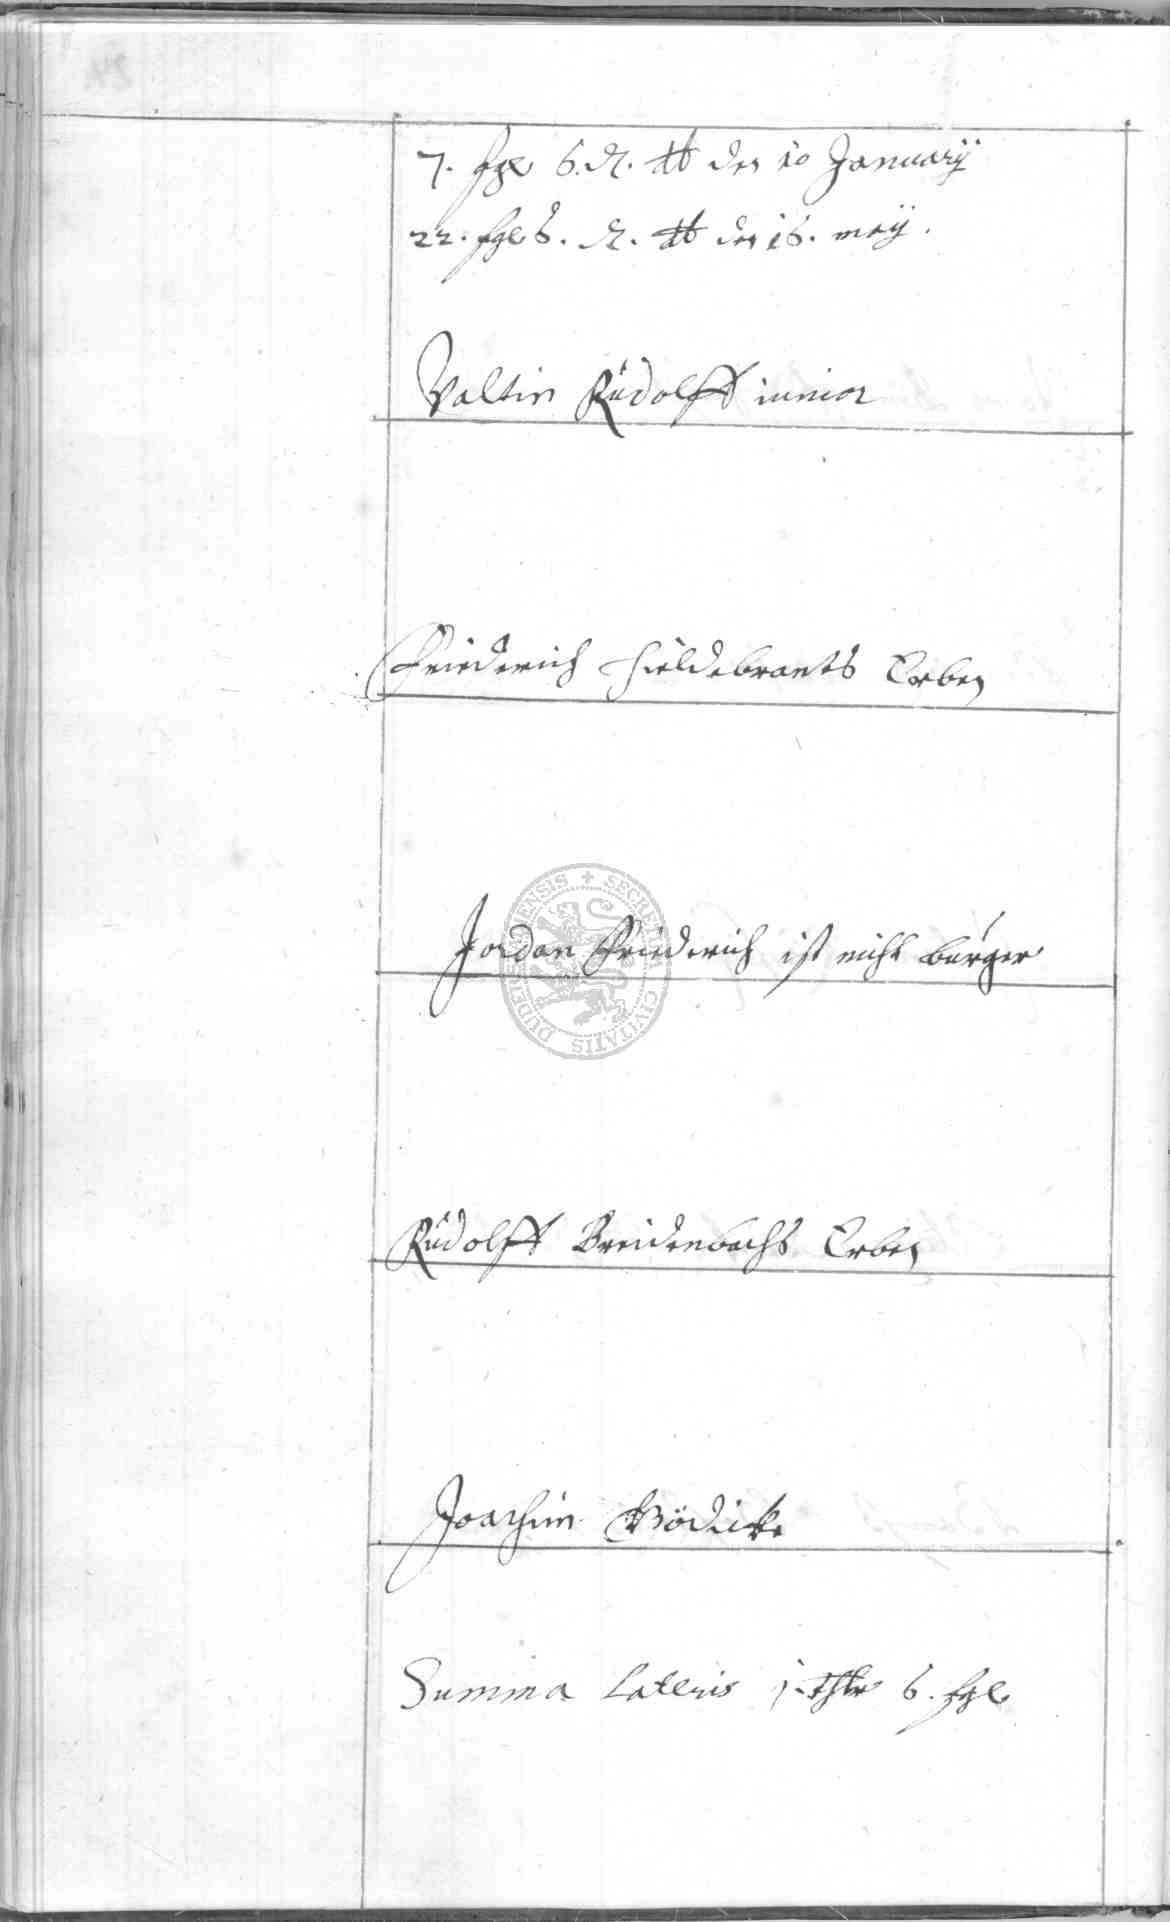 7. sgl 6. d. dt den 10 Januarÿ
22. sgl 6. d. dt den 16. meÿ.
Valtin Rudolff iunior
Friederich Hieldebrants Erben
Jordan Friederich ist nicht burger
Rudolff Breidenbachs Erben
Joachim Bödicke
Summa Lateris 1. thlr 6. sgl
SECRETUM CIVITATIS DUDERSTADENSIS